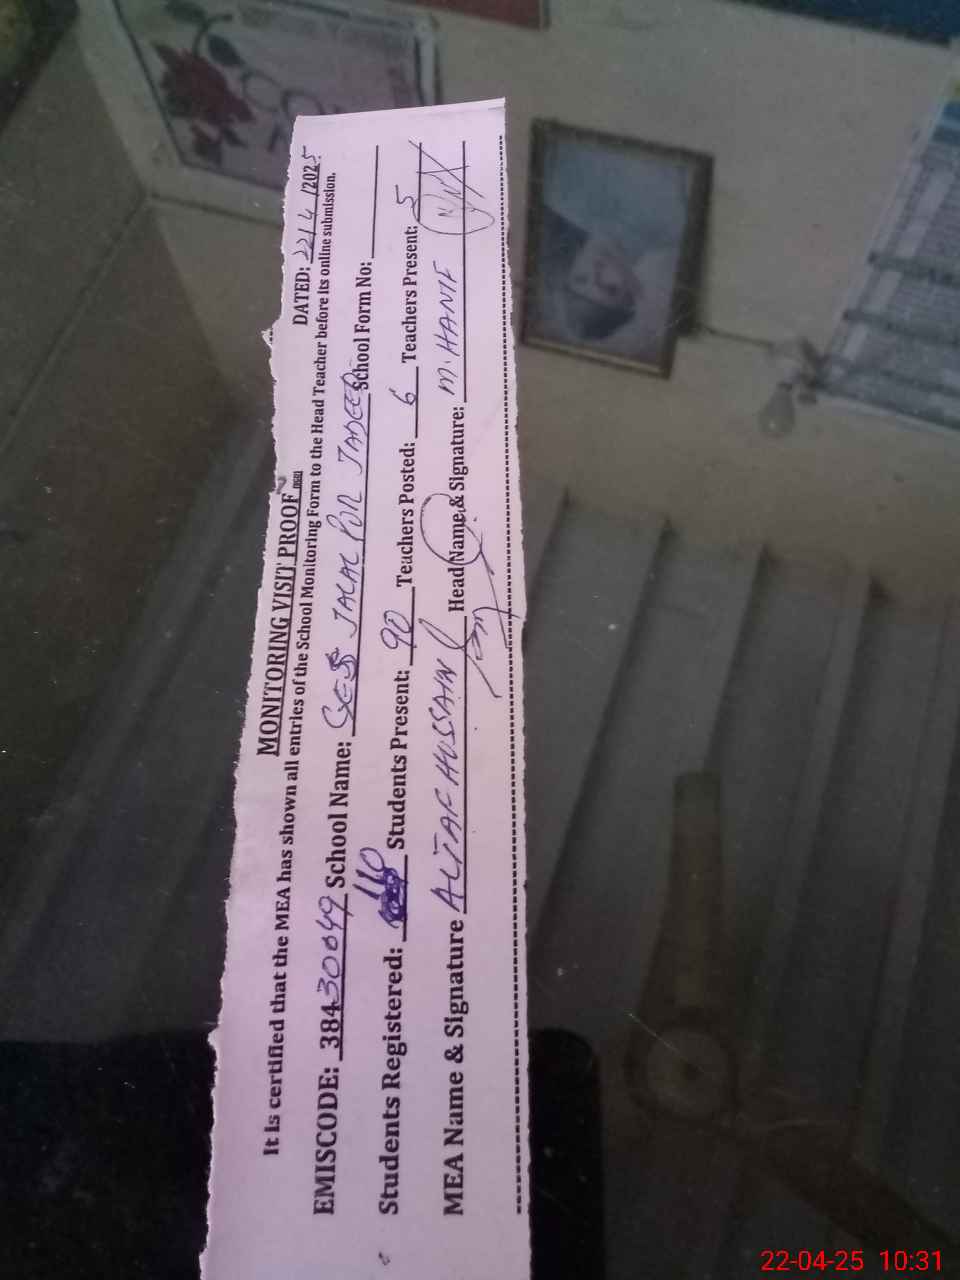 MONITORING VISIT PROOF DATED: 22/4/2025
It is certified that the MEA has shown all entries of the School Monitoring Form to the Head Teacher before its online submission.
EMISCODE: 38430049 School Name: JALAL PUR JADEED School Form No:
Students Registered: 110 Students Present: 90 Teachers Posted: 6 Teachers Present: 5
MEA Name & Signature ALTAF HUSSAIN Head Name & Signature: M. HANIF
22-04-25 10:31